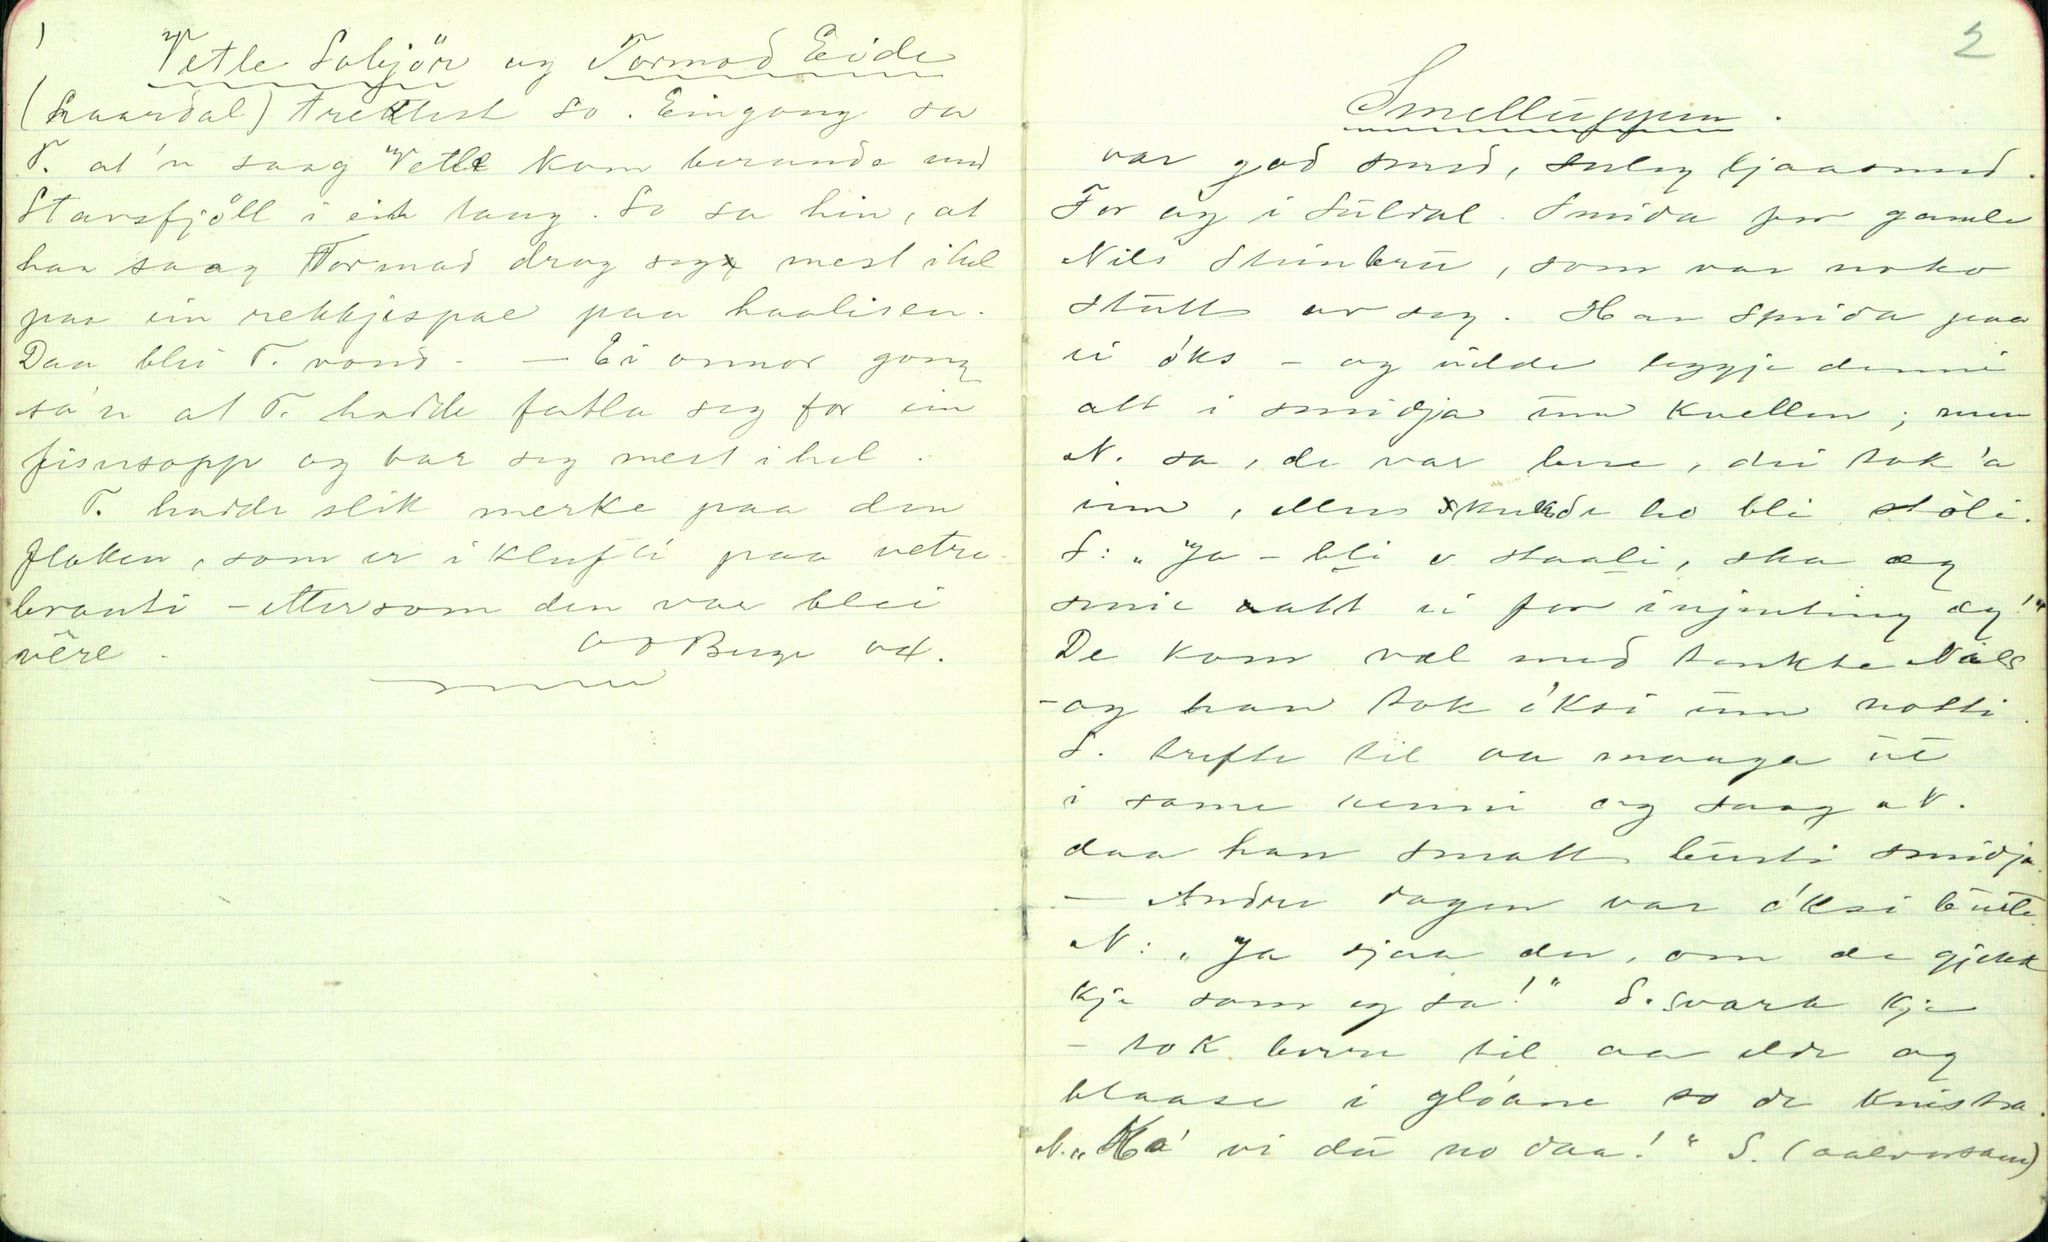 1
Vetle Lobjör og Tormod Eide
(Laardal) trektest so. Eingong sa
T. at 'n saag Vetle kom berande med
Starsfjöll i ei taug. So sa hin, at
han saag Tormod drog seg mest ihel
paa ein rekkjespæ paa haalisen.
Daa blei T. vond. — Ei onnor gong
sa 'n at T. hadde fatla seg for ein
fisesopp og bar seg mest ihel.
T. hadde slik merke paa den
flaken, som er i klufti paa vetre
branti – ettersom den var blei
vere.
Berge
2
Smelluppen.
var god smed, ljaasmed.
For og i Suldal. Smida for gamle
Nils Steinbru, som var noko
stutt av seg. Han smida paa
ei óks – og vilde leggje denne
att i smidja um kvellen; men
N. sa, de var bere, dei tok 'a
inn, ellers skulde ho bli stóli.
S: „Ja – bli o staali, ska eg
smie att ei for injenting eg!"
De kom vel med tenkte Nils
– og han tok óksi inn notti.
S. trefte til aa maaga ut
i same venni og saag N.
daa han smatt burti smidja.
— Andre dagen var óksi burte.
N: „Ja sjaa du, om de gjekk
kje som eg sa!" S. svara kje
– tok berre til aa elde og
blaase i glóane so de knistra.
N. „Ka' vi du no daa!" S. (aalvorsam)